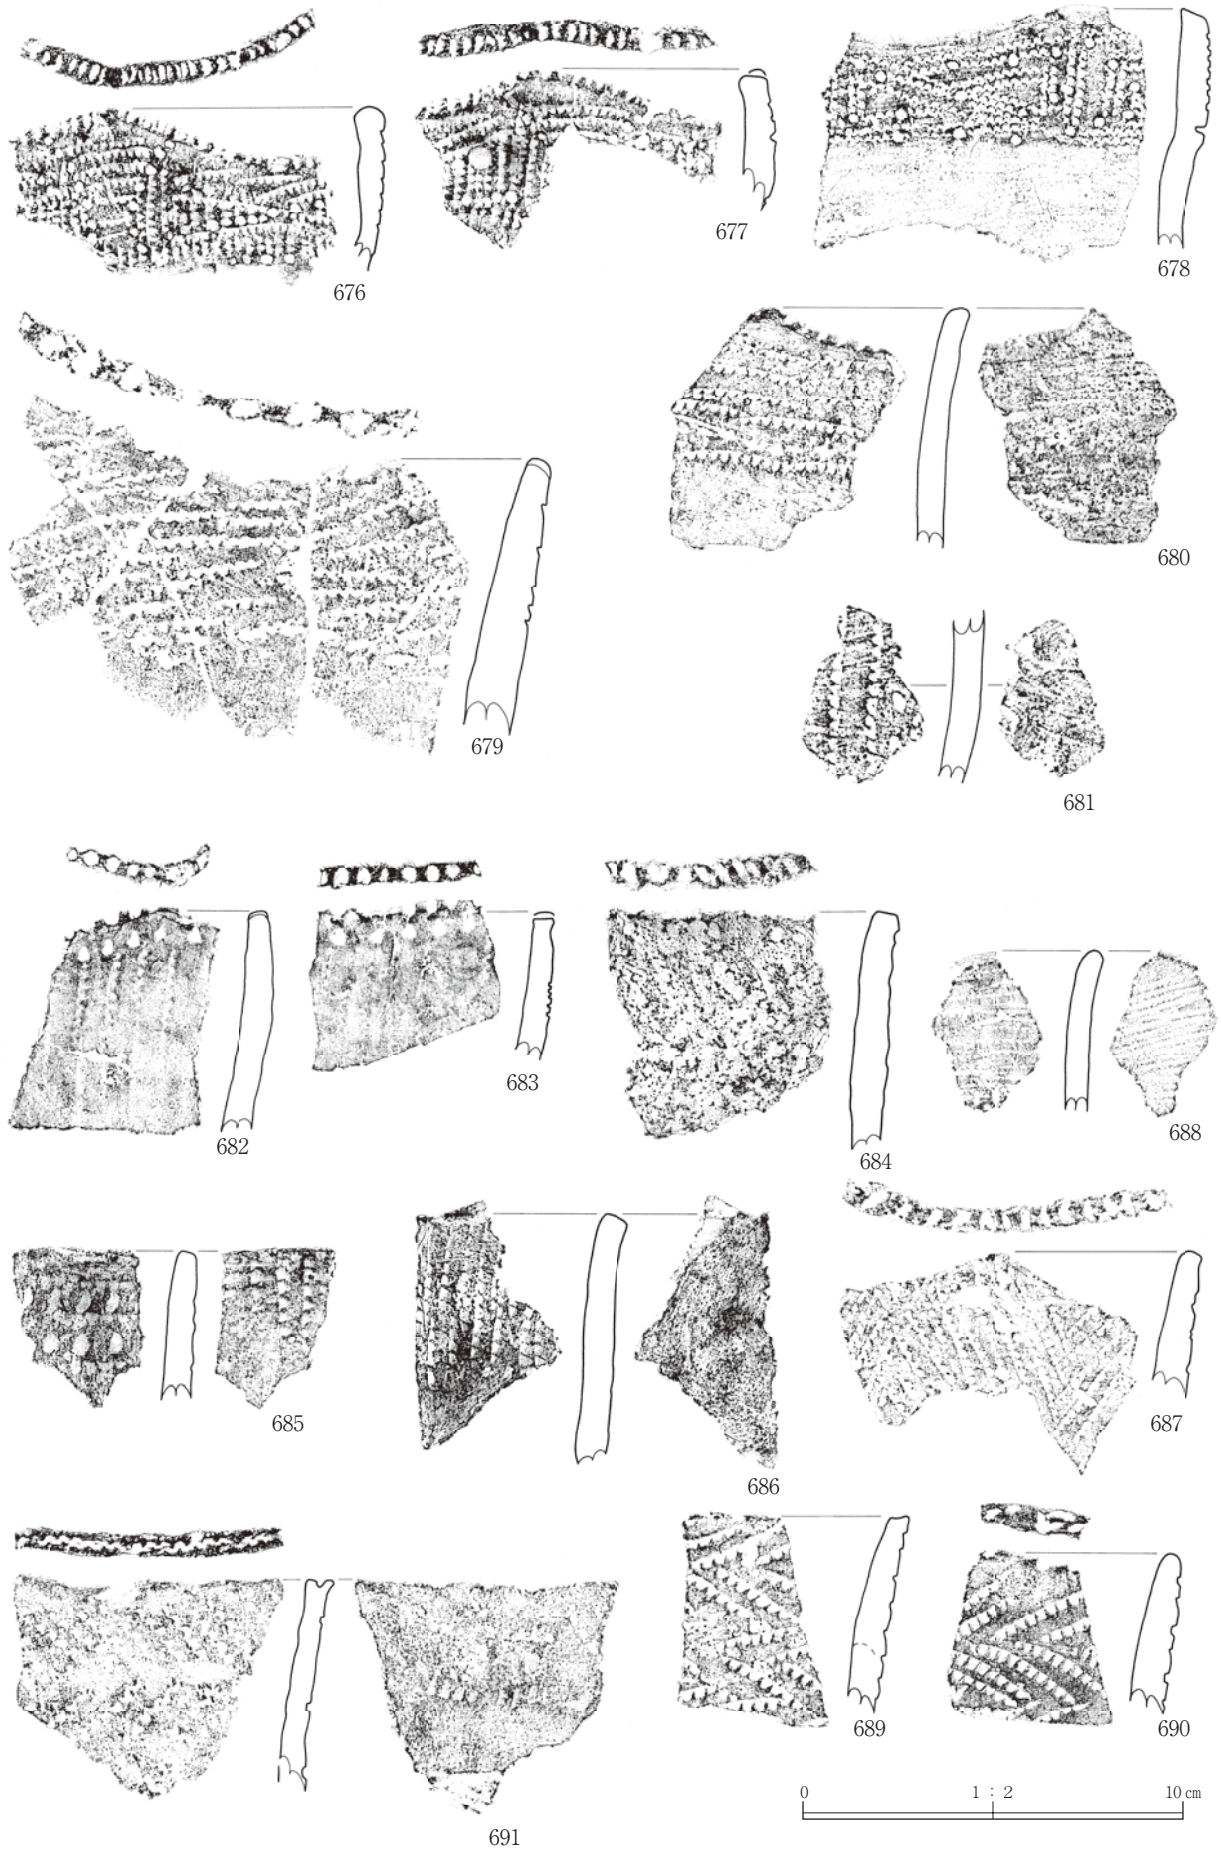 676
677
678
679
680
681
682
683
684
688
685
686
687
689
690
691
0 1 : 2 10 cm